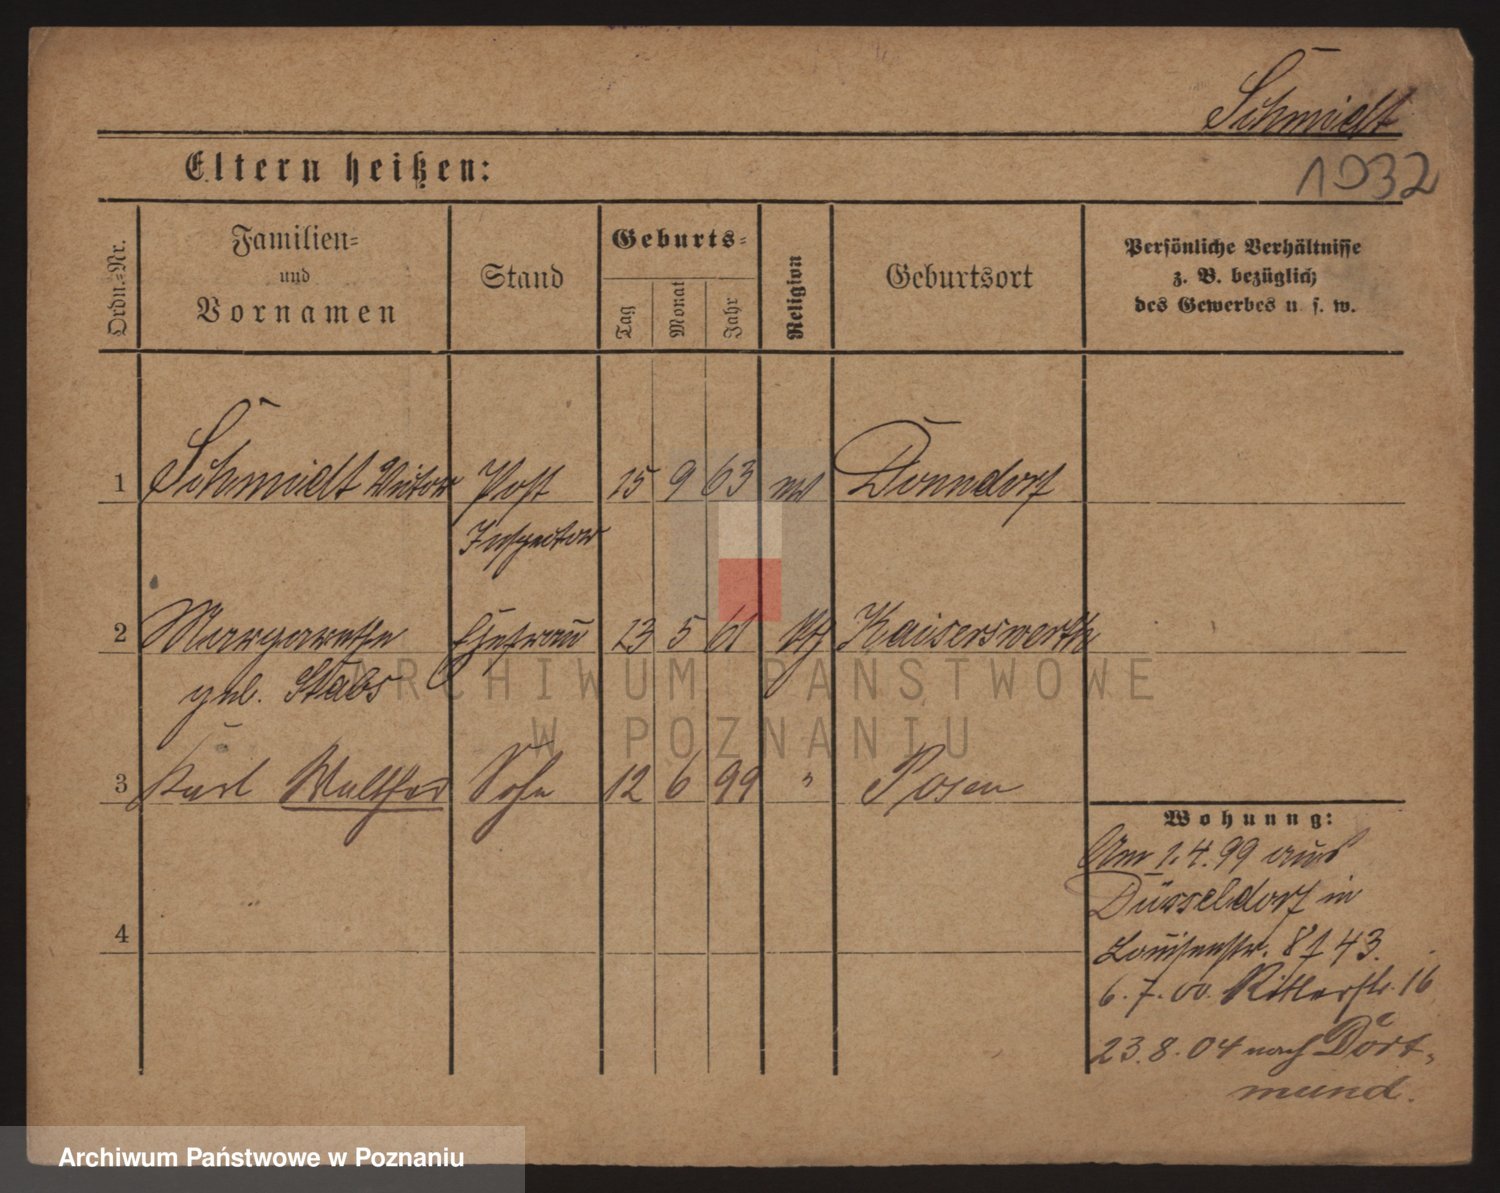 Schmidt
Eltern heißen:
1932
Ordn.-Nr.
Familien-
und
Vornamen
Stand
Geburts-
Tag
Monat
Jahr
Religion
Geburtsort
Persönliche Verhältnisse
z. B. bezüglich
des Gewerbes u. s. w.
1 Schmidt Victor Post 15 9 63 Donndorf
Inspector
2 Margarethe Ehefrau 23 5 61 Kaiserswerth
geb. Stabs
3 Karl Walther Sohn 12 6 99 " Posen
Wohnung:
Am 1.4.99 aus
Düsseldorf in
4
Louisenstr. 8 f 43.
6.7.00. Ritterstr. 16
23.8.04 nach Dort-
mund.
ARCHIWUM PAŃSTWOWE
W POZNANIU
Archiwum Państwowe w Poznaniu